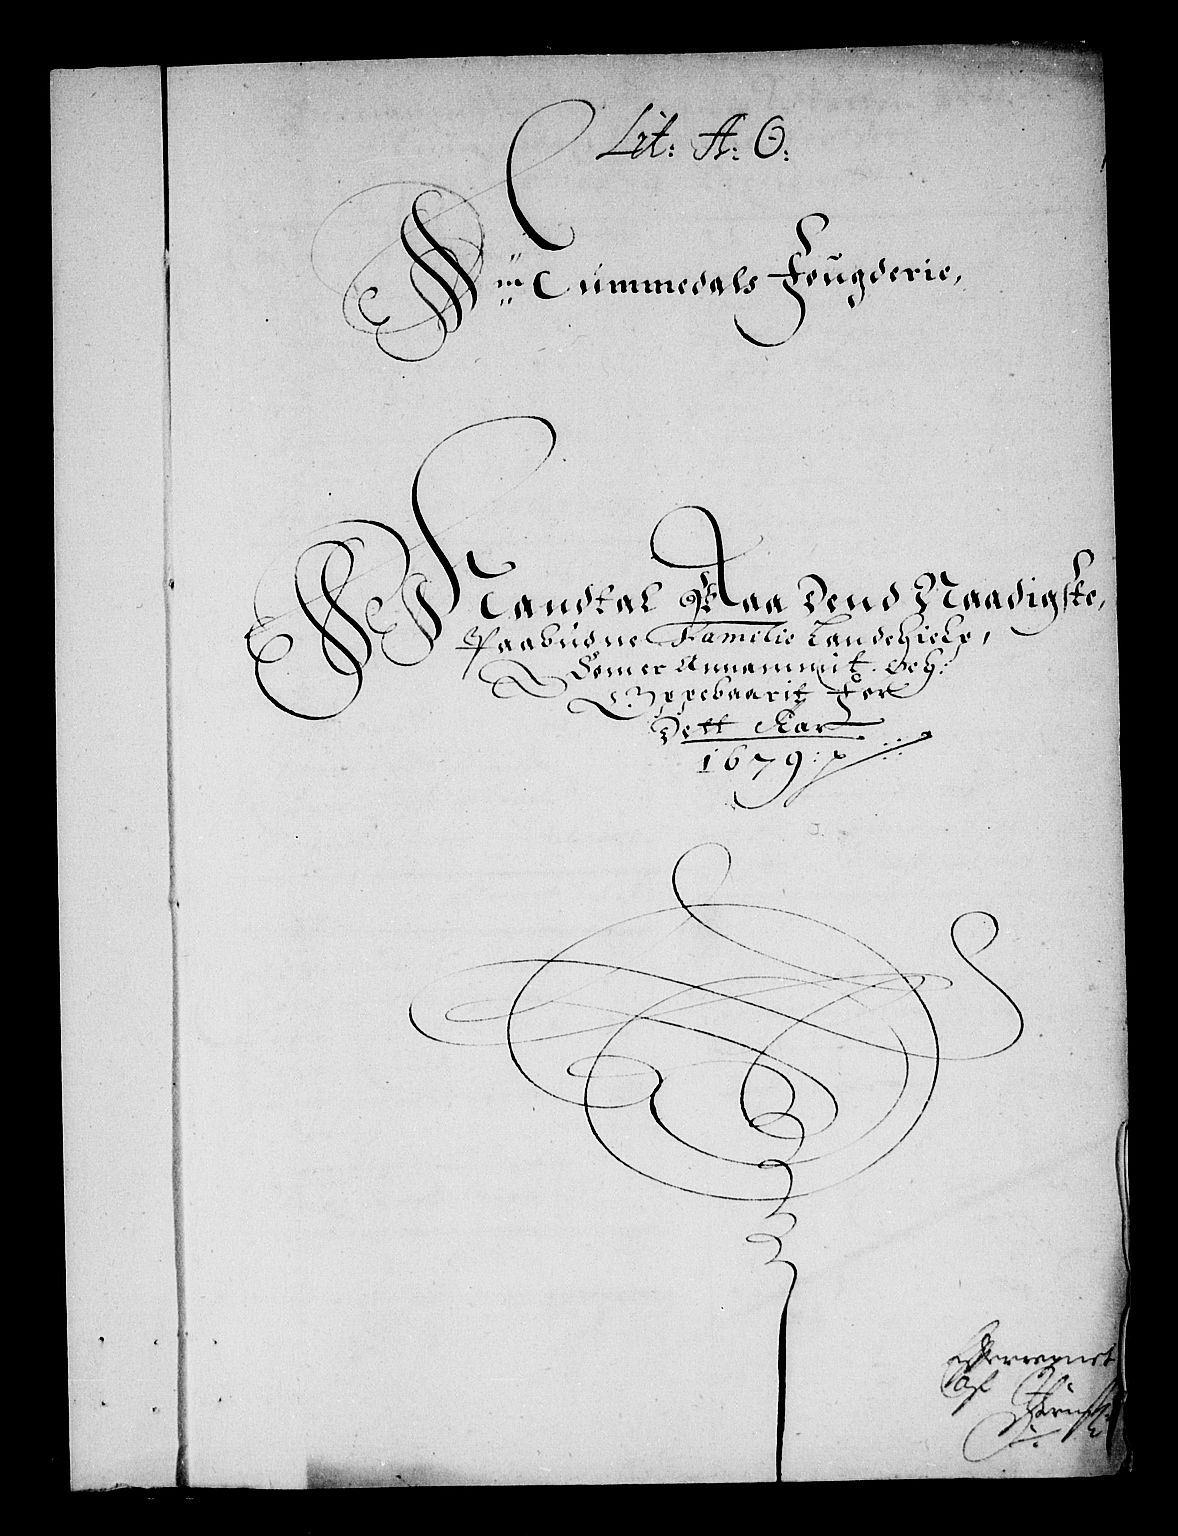 Lit: A: O:
Nummedals Fougderie,
Mandtal Paa Dend Naadigste,
Paabudne Familie Landehielp,
Som er Annammit och
Oppebaarit For
Dett Aar
1679: